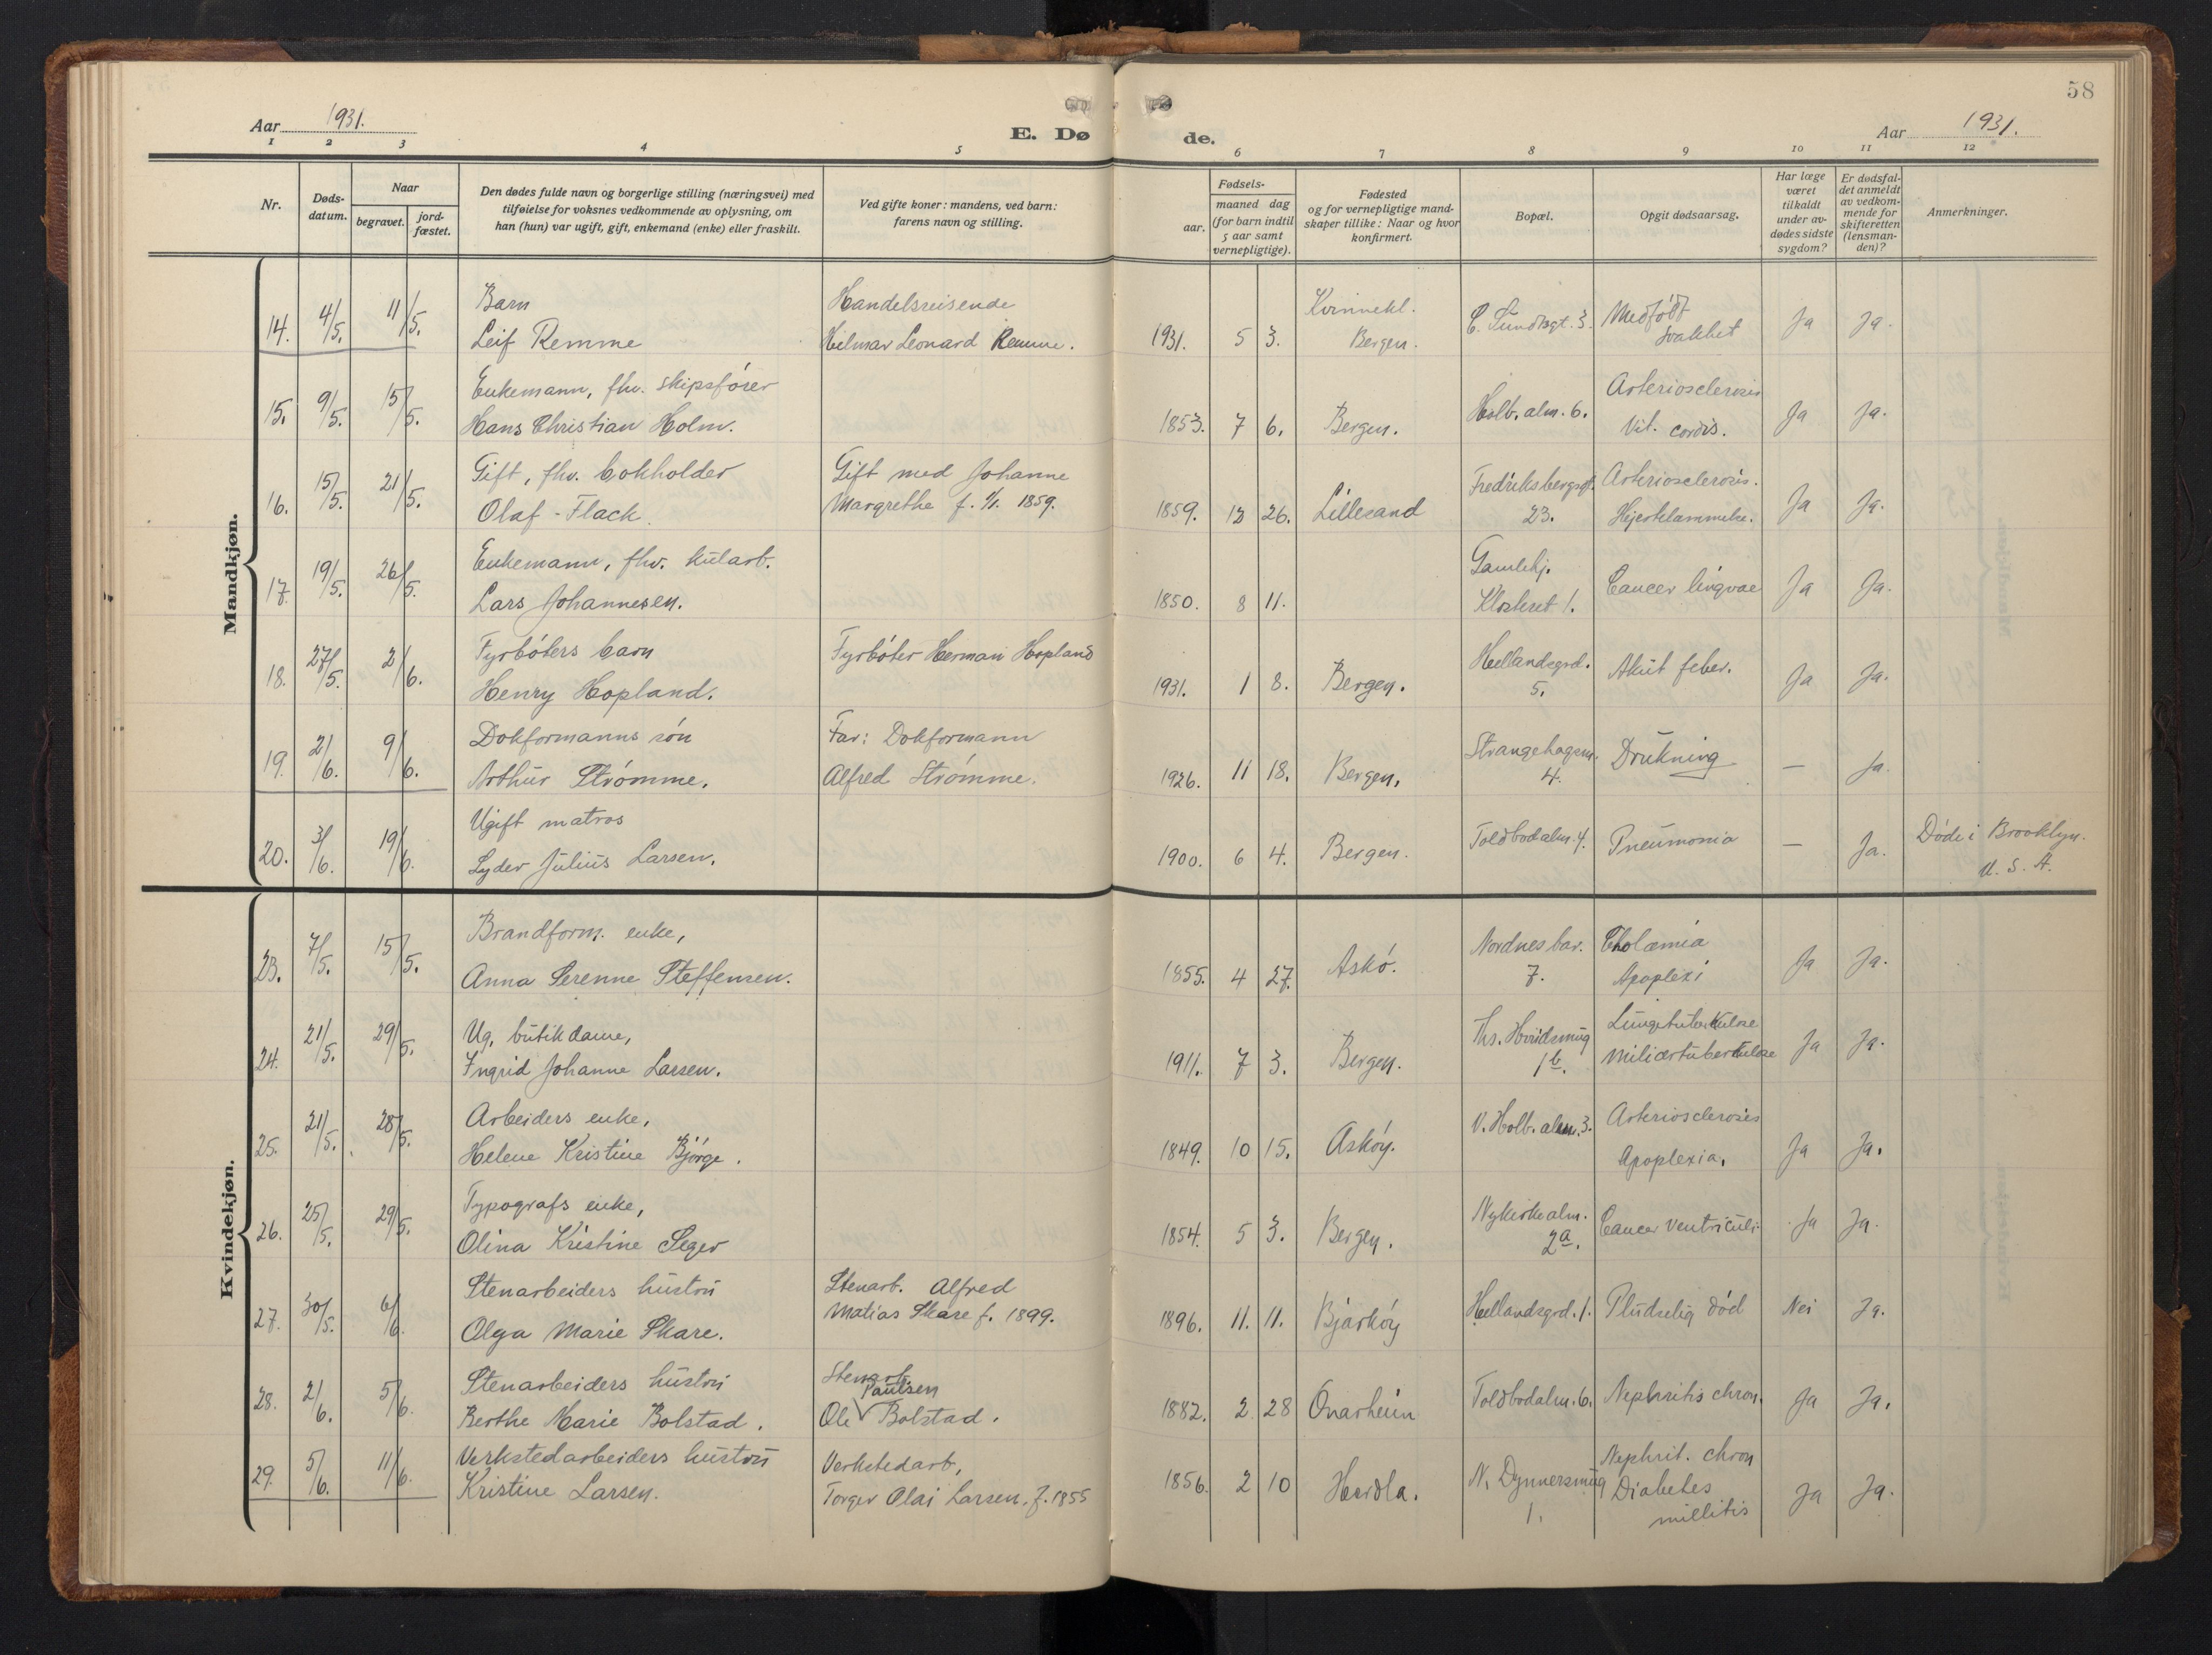 58
Aar 1931.
E. Døde.
Aar 1931.
1 2 3 4 5 6 7 8 9 10 11 12
Nr.
Døds-
datum.
Naar
begravet.
jord-
fæstet.
Den dødes fulde navn og borgerlige stilling (næringsvei) med
tilføielse for voksnes vedkommende av oplysning, om
han (hun) var ugift, gift, enkemand (enke) eller fraskilt.
Ved gifte koner: mandens, ved barn:
farens navn og stilling.
Fødsels-
aar.
maaned dag
(for barn indtil
5 aar samt
vernepligtige).
Fødested
og for vernepligtige mand-
skaper tillike: Naar og hvor
konfirmert.
Bopæl.
Opgit dødsaarsag.
Har læge
været
tilkaldt
under av-
dødes sidste
sygdom?
Er dødsfal-
det anmeldt
av vedkom-
mende for
skifteretten
(lensman-
den)?
Anmerkninger.
Mandkjøn.
14. 4/5. 11/5. Barn Handelsreisende Kvinnekl. C. Sundtsgt. 3. Medfödt
Leif Remme Hilmar Leonard Remme. 1931. 5 3. Bergen. svakhet Ja Ja.
15. 9/5. 15/5. Enkemann, fhv. skipsförer Arteriosclerosis
Hans Christian Holm. 1853. 7 6. Bergen. Holb. alm. 6. Vit. cordis. Ja Ja.
16. 15/5. 21/5. Gift, fhv. bokholder Gift med Johanne Fredriksbergsgt. Arteriosclerosis.
Olaf Flack. Margrethe f. 1/1. 1859. 1859. 12 26. Lillesand 23. Hjerteлammelse. Ja Ja.
17. 19/5. 26/5. Enkemann, fhv. kularb. Gamlehj.
Lars Johannesen. 1850. 8 11. Klosteret 1. Cancer lingvae Ja Ja.
18. 27/5. 2/6. Fyrböters barn Fyrböter Herman Hopland Hellandsgrd.
Henry Hopland. 1931. 1 8. Bergen. 5. Akut feber. Ja Ja.
19. 2/6. 9/6. Dokformanns sön Far: Dokformann Strangehagen.
Arthur Strömme. Alfred Strömme. 1926. 11 18. Bergen. 4. Drukning — Ja.
20. 3/6. 19/6. Ugift matros Döde i Brooklyn.
Lyder Julius Larsen. 1900. 6 4. Bergen. Toldbodalm. 4. Pneumonia — Ja. U. S. A.
Kvindekjøn.
23. 7/5. 15/5. Brandform. enke, Nordnesbar. Cholæmia
Anna Serenne Steffensen. 1855. 4 27. Askö. 7. Apoplexi Ja Ja.
24. 21/5. 29/5. Ug. butikdame, Ths. Hvidsmug Lungetuberkulose
Ingrid Johanne Larsen. 1911. 7 3. Bergen. 1b. Miliærtuberkulose Ja Ja.
25. 21/5. 28/5. Arbeiders enke, V. Holb. alm. 3. Arteriosclerosis
Helene Kristine Björge. 1849. 10 15. Asköy. Apoplexia. Ja Ja.
26. 25/5. 29/5. Typografs enke, Nykirkealm.
Olina Kristine Seger 1854. 5 3. Bergen. 2a. Cancer ventriculi Ja Ja.
27. 30/5. 6/6. Stenarbeiders hustru Stenarb. Alfred
Olga Marie Skare. Matias Skare f. 1899. 1896. 11. 11. Bjarköy Hellandsgrd. 1. Pludselig död Nei Ja.
28. 2/6. 5/6. Stenarbeiders hustru Stenarb.
Berthe Marie Bolstad. Ole Paulsen Bolstad. 1882. 2 28 Onarheim Toldbodalm. 6. Nephritis chron. Ja Ja.
29. 5/6. 11/6. Verkstedarbeiders hustru Verkstedarb. Nephrit. chron
Kristine Larsen. Torger Olai Larsen. f. 1855 1856. 2 10 Herdla. N. Dynnersmug 1. Diabetes
millitis Ja Ja.